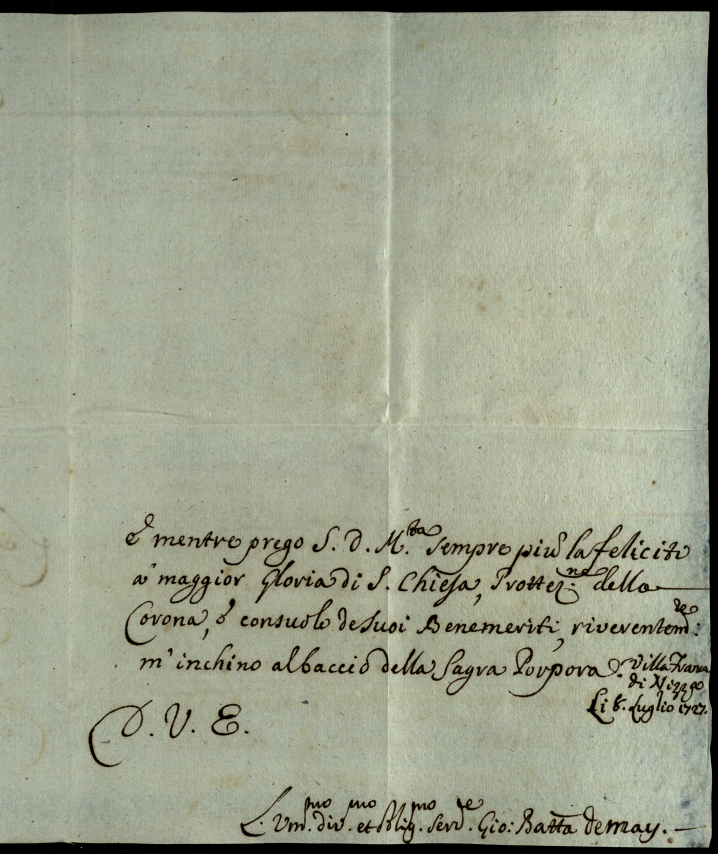 e mentre prego S. D. M.ta sempre più la feliciti
a' maggior Gloria di S. Chiesa, Prottez.ne della
Corona, e consuolo de suoi Benemeriti, riverentem.te
m'inchino al baccio della Sagra Porpora. Villa Franca
di Nizza
Li 8. Luglio 1727.
D. V. E.
L. Um.mo div.mo et oblig.mo Serv.re Gio: Batta Demay.